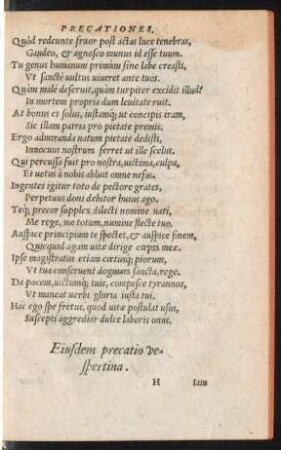 PRECATIONES.
Quòd redeunte fruor post actas luce tenebras,
Gaudeo, & agnosco munus id esse tuum.
Tu genus humanum primùm sine labe creasti,
Vt sanctè uultus uiueret ante tuos.
Quim malè deseruit, quim turpiter excidit illud?
In mortem propria dum leuitate ruit.
At bonus es solus, iustamq; ut concipis iram,
Sic illam patria pro pietate premis.
Ergo admiranda natum pietate dedisti,
Innocuus nostrum ferret ut ille scelus.
Qui percussa fuit pro nostra, uictima, culpa,
Et uetus à nobis abluit omne nefas.
Ingentes igitur toto de pectore grates,
Perpetuus doni debitor huius ago.
Teq; precor supplex dilecti nomine nati,
Me rege, me totum, numine flecte tuo.
Auspice principium te spectet, & auspice finem,
Quicquid agam uitæ dirige cœpta meæ.
Ipse magistratus etiam cœtusq; piorum,
Vt tua conseruent dogmata sancta, rege.
Da pacem, uictumq; tuis, compesce tyrannos,
Vt maneat uerbi gloria iusta tui.
Hac ego spe fretus, quod uitæ postulat usus,
Suscepti aggrediar dulce laboris onus.
Eiusdem precatio ve-
spertina.
H